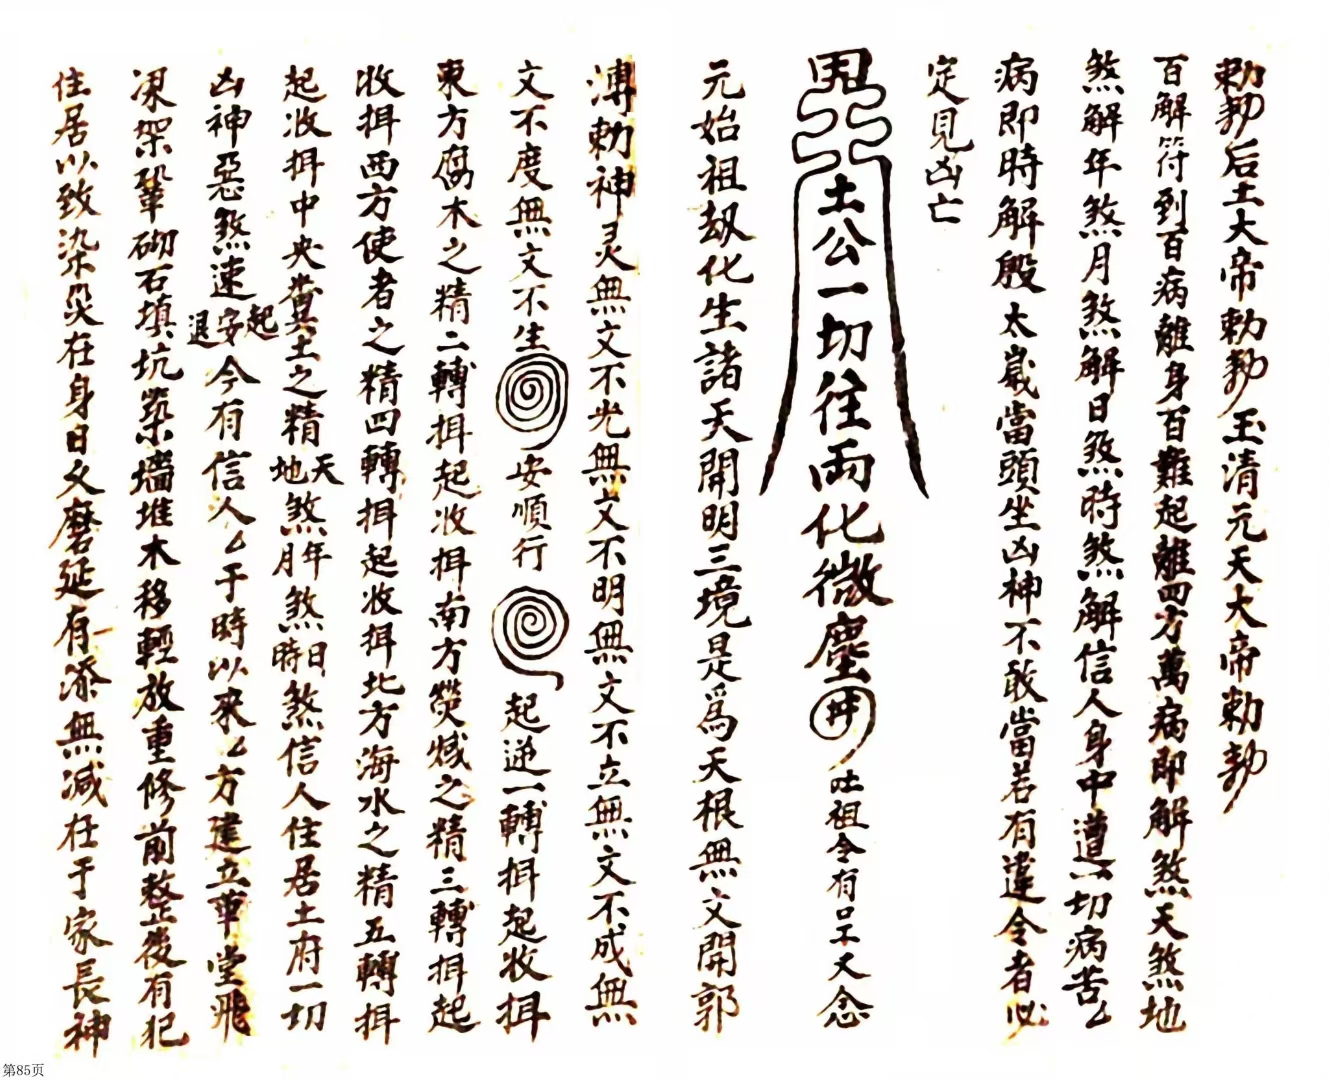 勅勅后土大帝勅勅玉清元天大帝勅勅
百解符到百病離身百難起離四方萬病即解煞天煞地
煞解年煞月煞解日煞時煞解信人身中遭一切病苦厶
病即時解殷太歲當頭坐凶神不敢當若有違令者必
定見凶亡
土公一切往雨化微塵 井 吐祖令有呈不又念
元始祖劫化生諸天開明三境是爲天根無文開郭
溥勅神灵無文不光無文不明無文不立無文不成無
文不度無文不生 安順行 起逆一轉揖起收揖
東方腐木之精二轉揖起收揖南方熒惑之精三轉揖起
收揖西方使者之精四轉揖起收揖北方海水之精五轉揖
起收揖中央糞土之精天地煞年月煞日時煞信人住居土府一切
凶神惡煞速起安退今有信人厶于時以來厶方建立華堂飛
梁架鞏砌石填坑築墻堆木移輕放重修前整後有犯
住居以致染災在身日乂磨延有添無減在于家長神
第85页